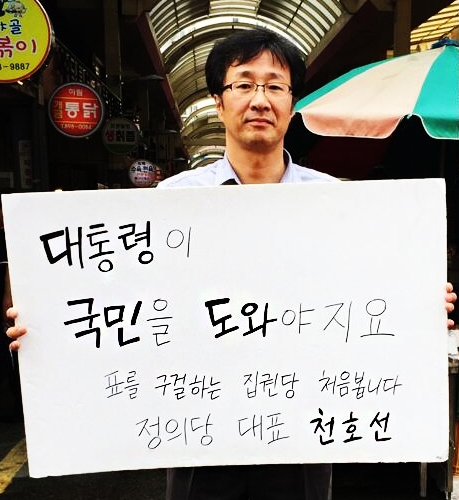 볶이
-9887
이원
통닭
생참들
대통령이
국민을 도와야지요
표를 구걸하는 집권당 처음봅니다
정의당 대표 천호선